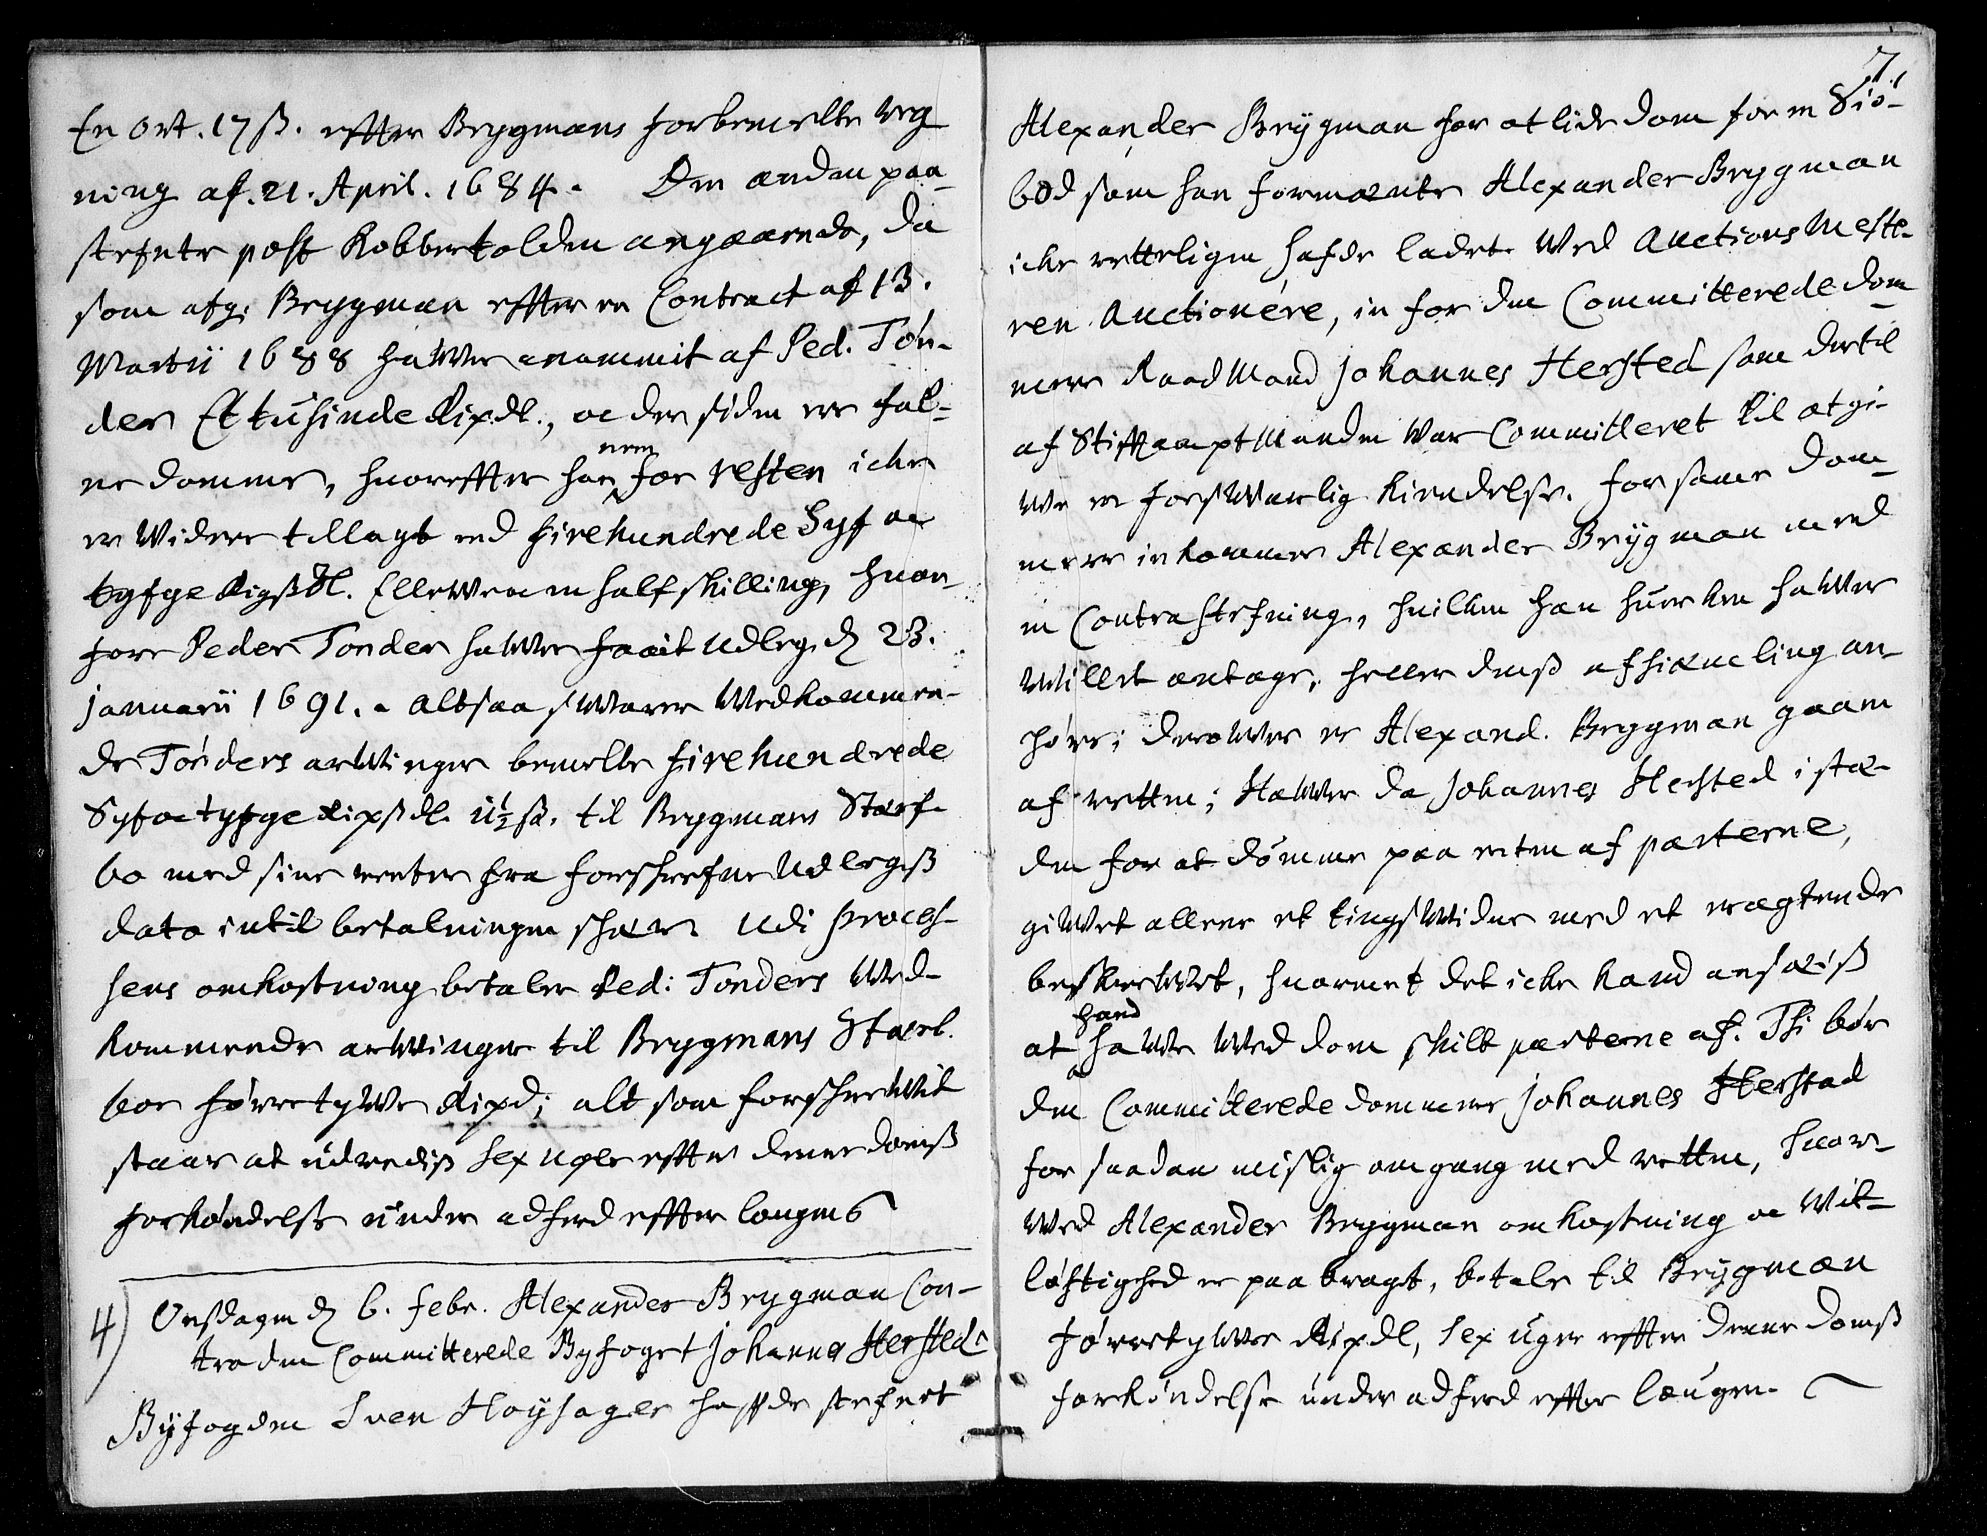 En ort. 17 ß. effter Brygmans forbemelte reg
ning af. 21. April. 1684. Den anden paa-
stefnte post Kobbertolden angaaende, da
som afg. Brygman effter en Contract af 13.
Martii 1688 hawer anammit af Ped. Tøn-
der Et tusinde Rixdl., oc der siden er fal-
ne domme, huoreffter ham for resten icke
nem
er Widere tillagt end firehundrede Syf oc
tyfge Rigßdl. Ellewe oc en half skilling, huor-
fore Peder Tonder hawer faait udleg d 23.
januarii 1691. altsaa swarer Wedkommen-
de Tønders arwinger bemelte firehundrede
Syf oc tyfge Rixßdl. 11½ ß. til Brygmans Sterf-
bo med sine renter fra forschrefne Udlegß
dato intil betalningen scheer. Udi proces-
sens omkostning betaler Ped: Tonders Wed-
kommende arwinger til Brygmans Sterf-
boe førretywe Rixd; alt som forschrewit
staar at udrediß Sex uger effter denne domß
forkøndelse under adferd effter lougen
4) Onsdagen d 6. febr. Alexander Brygman Con-
tra den Committerede Byfoget Johannes Hersted
Byfogden Sven Høysager haffde stefnet
7.
Alexander Brygman for at lide dom for en Siø-
bod som han formeente Alexander Brygman
icke rettelig hafde ladet Wed Auctions Meste-
ren Auctionére, in for den Committerede dom
mere Raadmand Johannes Hersted som dertil
af Stiftamptmanden war Committeret til at gi-
we en forswarlig kiendelse. for same dom-
mere inkommer Alexander Brygman med
en Contrastefning, huilken han huerken hawer
willet antage, heller denß afhandling an-
høre; derower er Alexand. Brygman gaaen
af retten; Hawer da Johannes Hersted i stæ-
den for at dømme paa retten af parterne,
giwet alleene et tingswidne med et
beskrewet, huormet det icke kand ansees
at hand hawe Wed dom skilt parterne af. Thi bør
den Committerede dommere Johannes Herstad
for saadan mislig omgang med retten, huor-
wed Alexander Brygman omkostning oc Wit-
løftighed er paabragt, betale til Brygman
førretywe Rixdl, Sex uger effter denne domß
forkøndelse under adferd effter lougen.